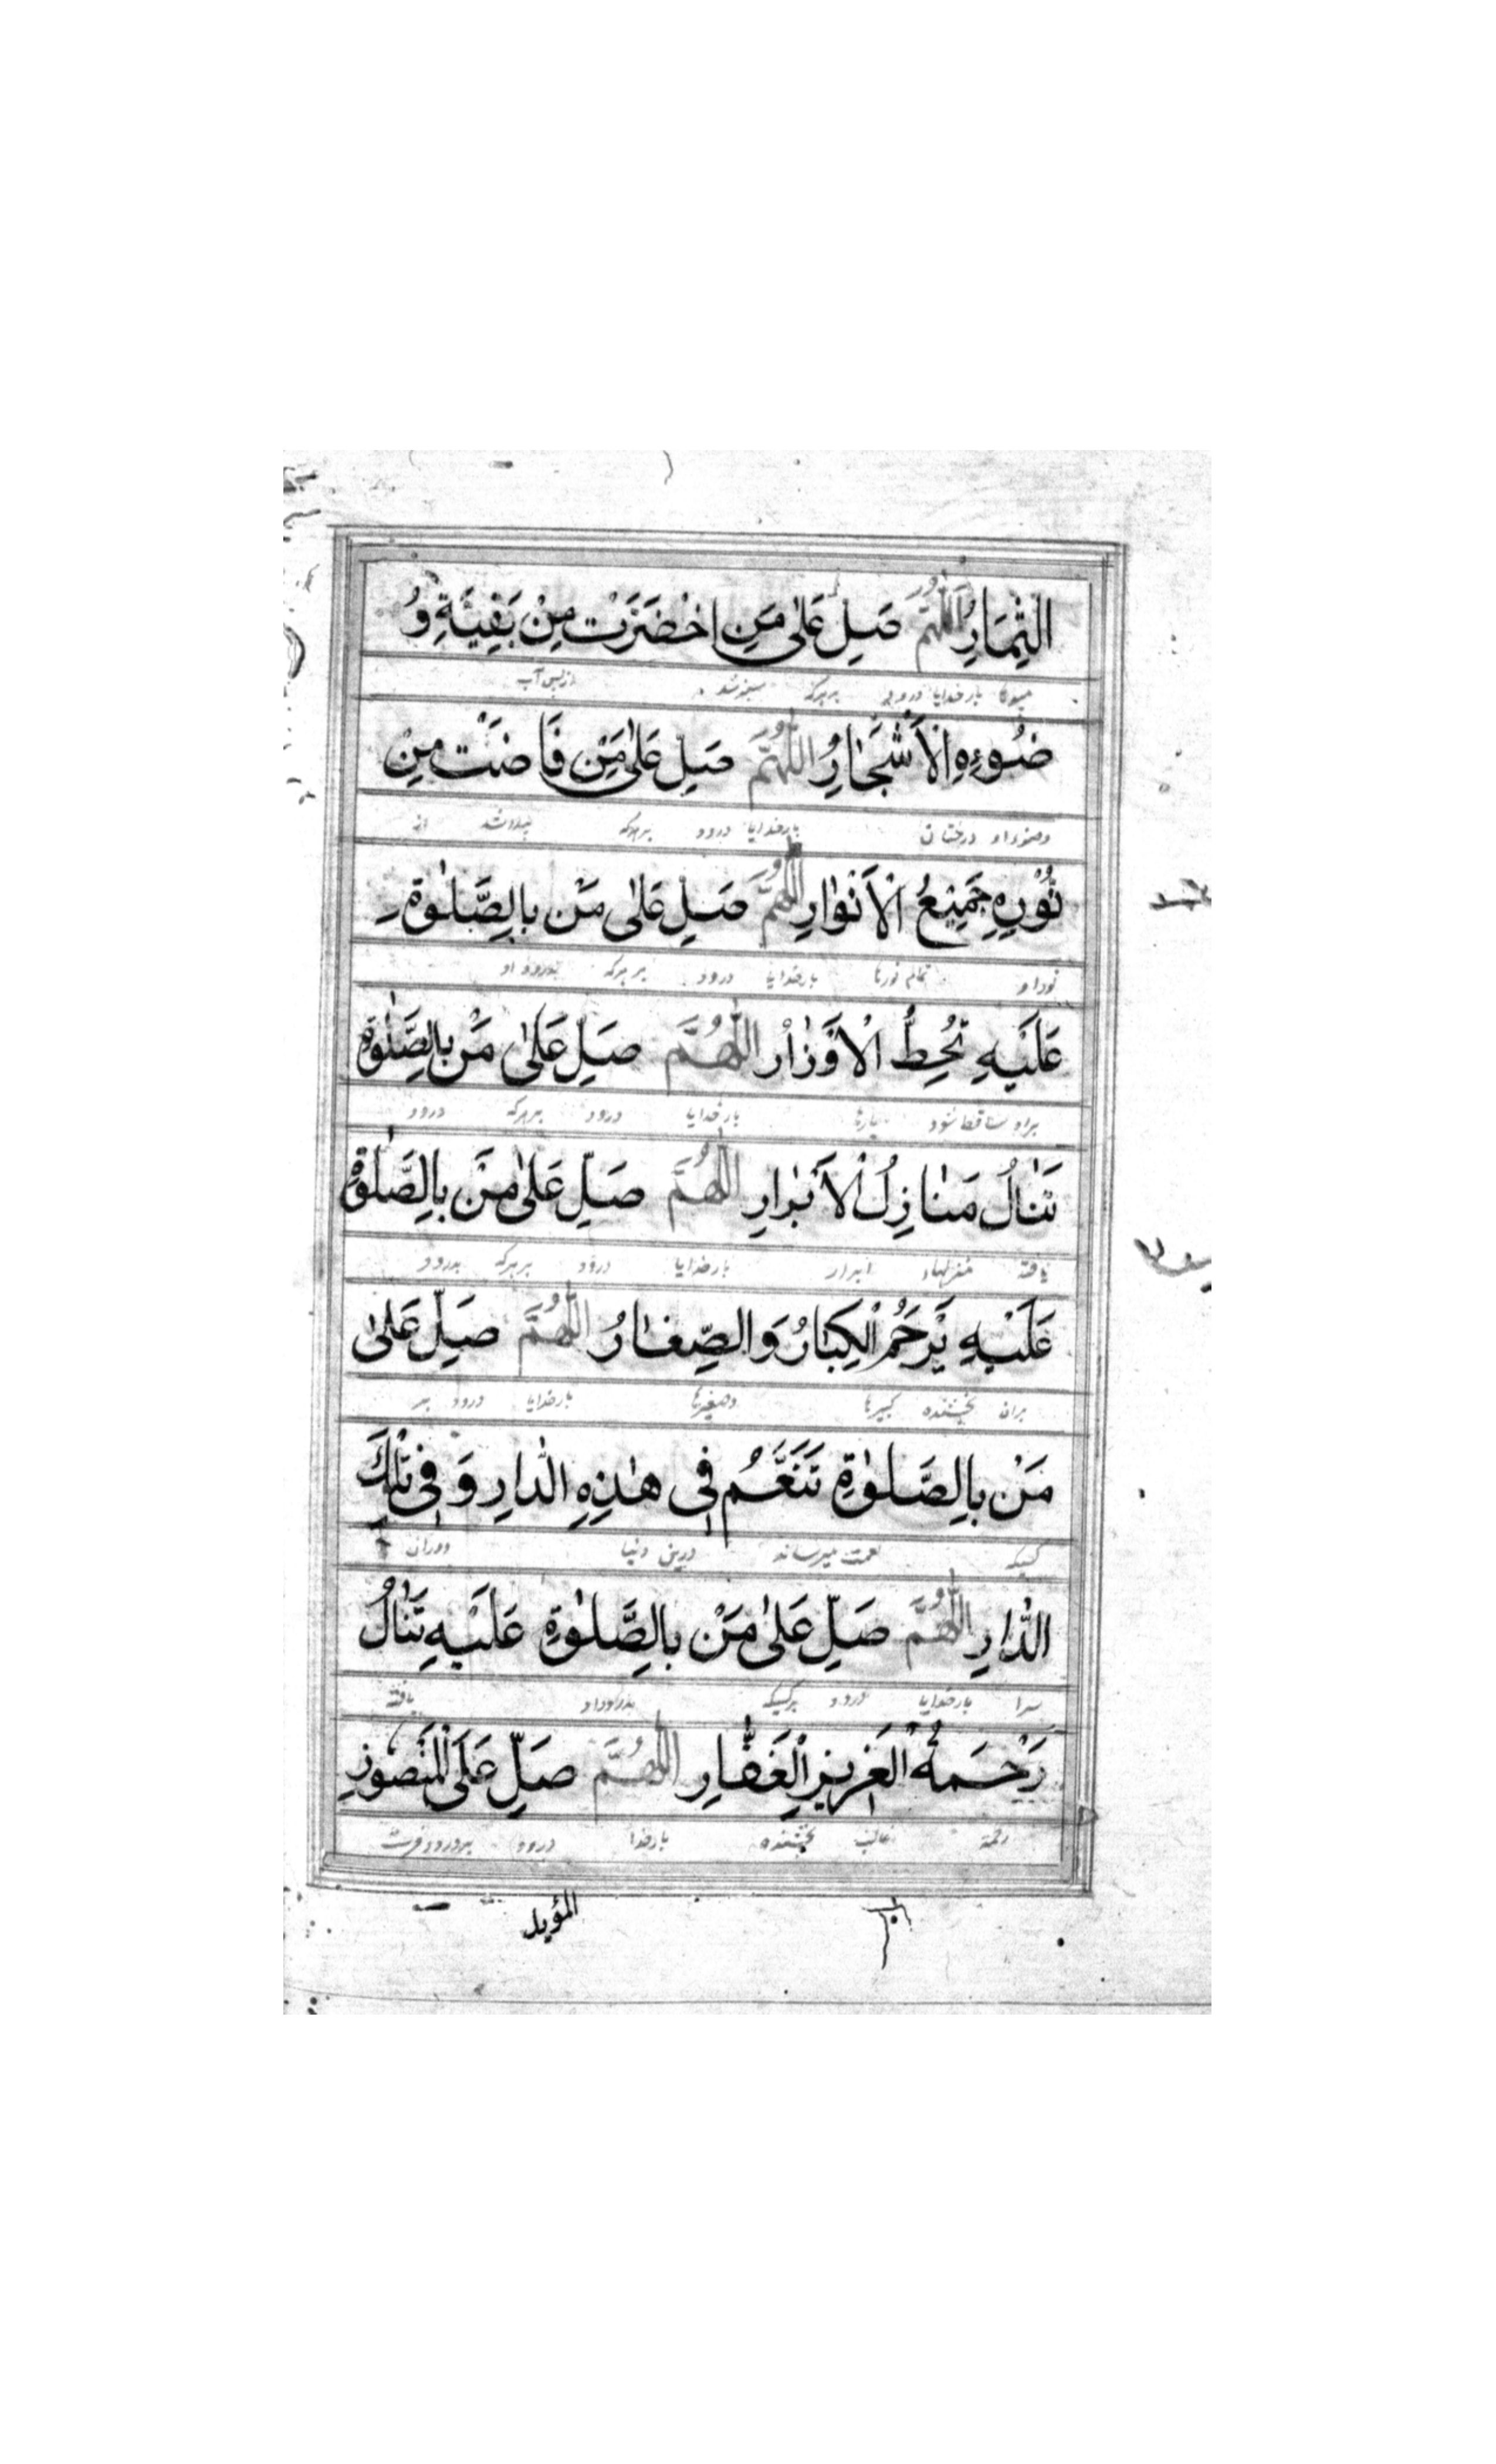 الثِّمَارُ اَللّٰهُمَّ صَلِّ عَلٰى مَنِ اخْضَرَّتْ مِنْ بَقِيَّةِ وُ
میوها بارخدایا درود بر هرکه سبز شد از پس آب
ضُوْءِهِ الْاَشْجَارُ اللّٰهُمَّ صَلِّ عَلٰى مَنْ فَاضَتْ مِنْ
وضوء او درختان بارخدایا درود بر هرکه پیدا شد از
نُوْرِهِ جَمِيْعُ الْاَنْوَارِ اللّٰهُمَّ صَلِّ عَلٰى مَنْ بِالصَّلٰوةِ
نور او تمام نورها بارخدایا درود بر هرکه بدرود او
عَلَيْهِ تُحَطُّ الْاَوْزَارُ اللّٰهُمَّ صَلِّ عَلٰى مَنْ بِالصَّلٰوةِ
براو ساقط شود بارها بارخدایا درود بر هرکه درود
تَنَالُ مَنَازِلُ الْاَبْرَارِ اللّٰهُمَّ صَلِّ عَلٰى مَنْ بِالصَّلٰوةِ
یافته منزلهاء ابرار بارخدایا درود بر هرکه بدرود
عَلَيْهِ يَرْحَمُ الْكِبَارُ وَالصِّغَارُ اللّٰهُمَّ صَلِّ عَلٰى
بران بخشنده کبیرها وصغیرها بارخدایا درود بر
مَنْ بِالصَّلٰوةِ تَتَنَعَّمُ فِى هٰذِهِ الدَّارِ وَفِى تِلْكَ
کسیکه نعمت میرساند درین دنیا ودران
الدَّارِ اللّٰهُمَّ صَلِّ عَلٰى مَنْ بِالصَّلٰوةِ عَلَيْهِ تَنَالُ
سرا بارخدایا درود برکسیکه یافته
رَحْمَةُ الْعَزِيْزِ الْغَفَّارِ اللّٰهُمَّ صَلِّ عَلَى الْمَنْصُوْرِ
رحمة غالب بخشنده بارخدا درود
المؤيد